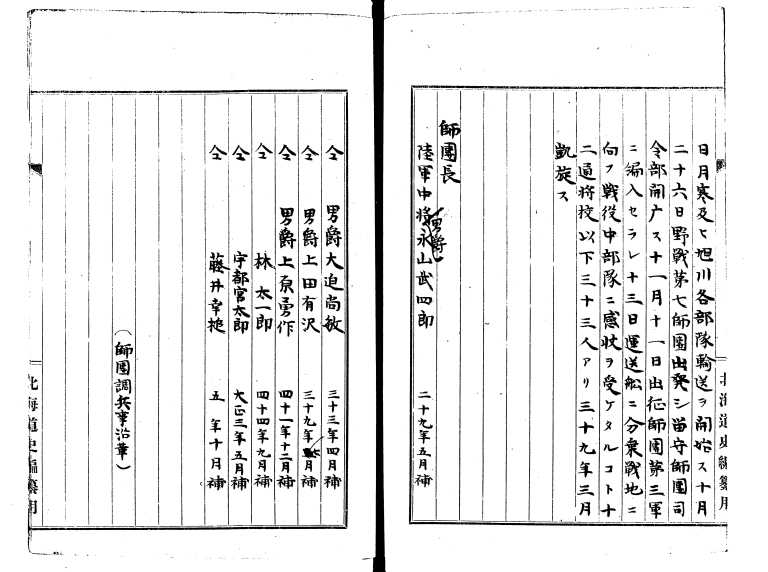 日月寒及ヒ旭川各部隊輸送ヲ開始ス十月
二十六日野戰第七師團出発シ留守師團司
令部開庁ス十一月十一日出征師團第三軍
ニ編入セラレ十三日運送舩ニ分乗戰地ニ
向フ戰役中部隊ニ感状ヲ受ケタルコト十
二過將校以下三十三人アリ三十九年三月
凱旋ス
師團長
陸軍中將男爵永山武四郎 二十九年五月補
北海道史編纂用
仝 男爵大迫尚敏 三十三年四月補
仝 男爵上田有沢 三十九年七月補
仝 男爵上原勇作 四十一年十二月補
仝 林太一郎 四十四年九月補
仝 宇都宮太郎 大正三年五月補
仝 藤井幸槌 五年十月補
(師團調兵事沿革)
北海道史編纂用